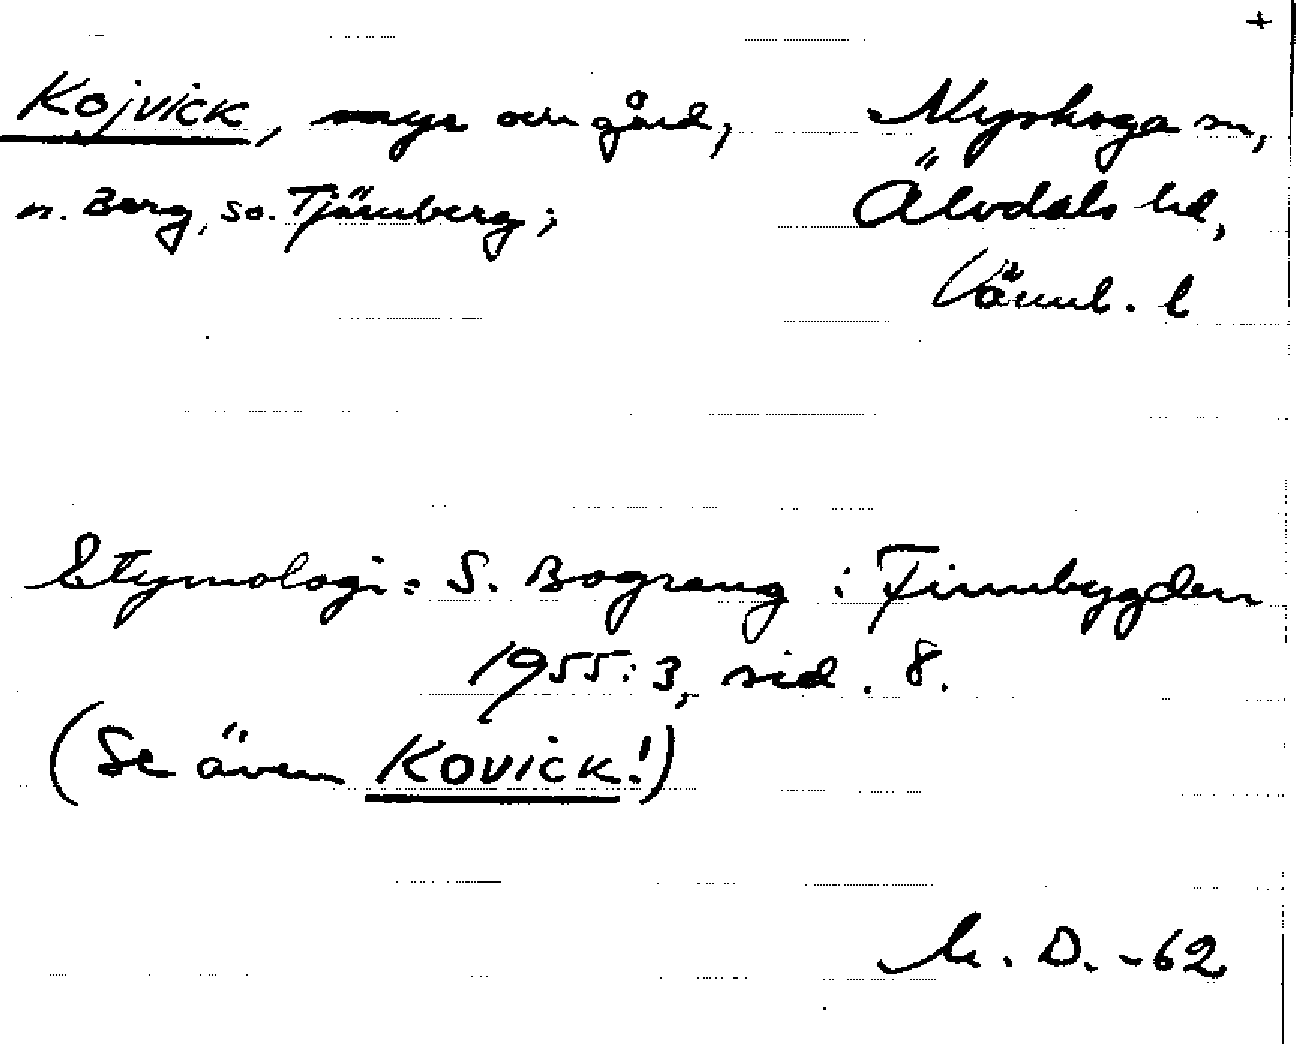 +
Kojvick, myr och gård, Nyskoga sn,
n. Berg, so. Tjärnberg; Älvdals hd,
Värml. l
Etymologi: S. Bograng i Finnbygden
1955:3, sid. 8.
(Se även Kovick!)
D. -62